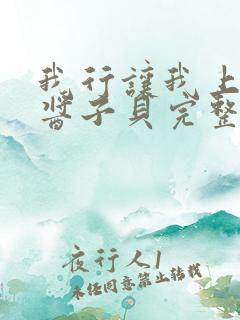 我行讓我上
醬子貝完整
夜行人1
未经同意禁止转载